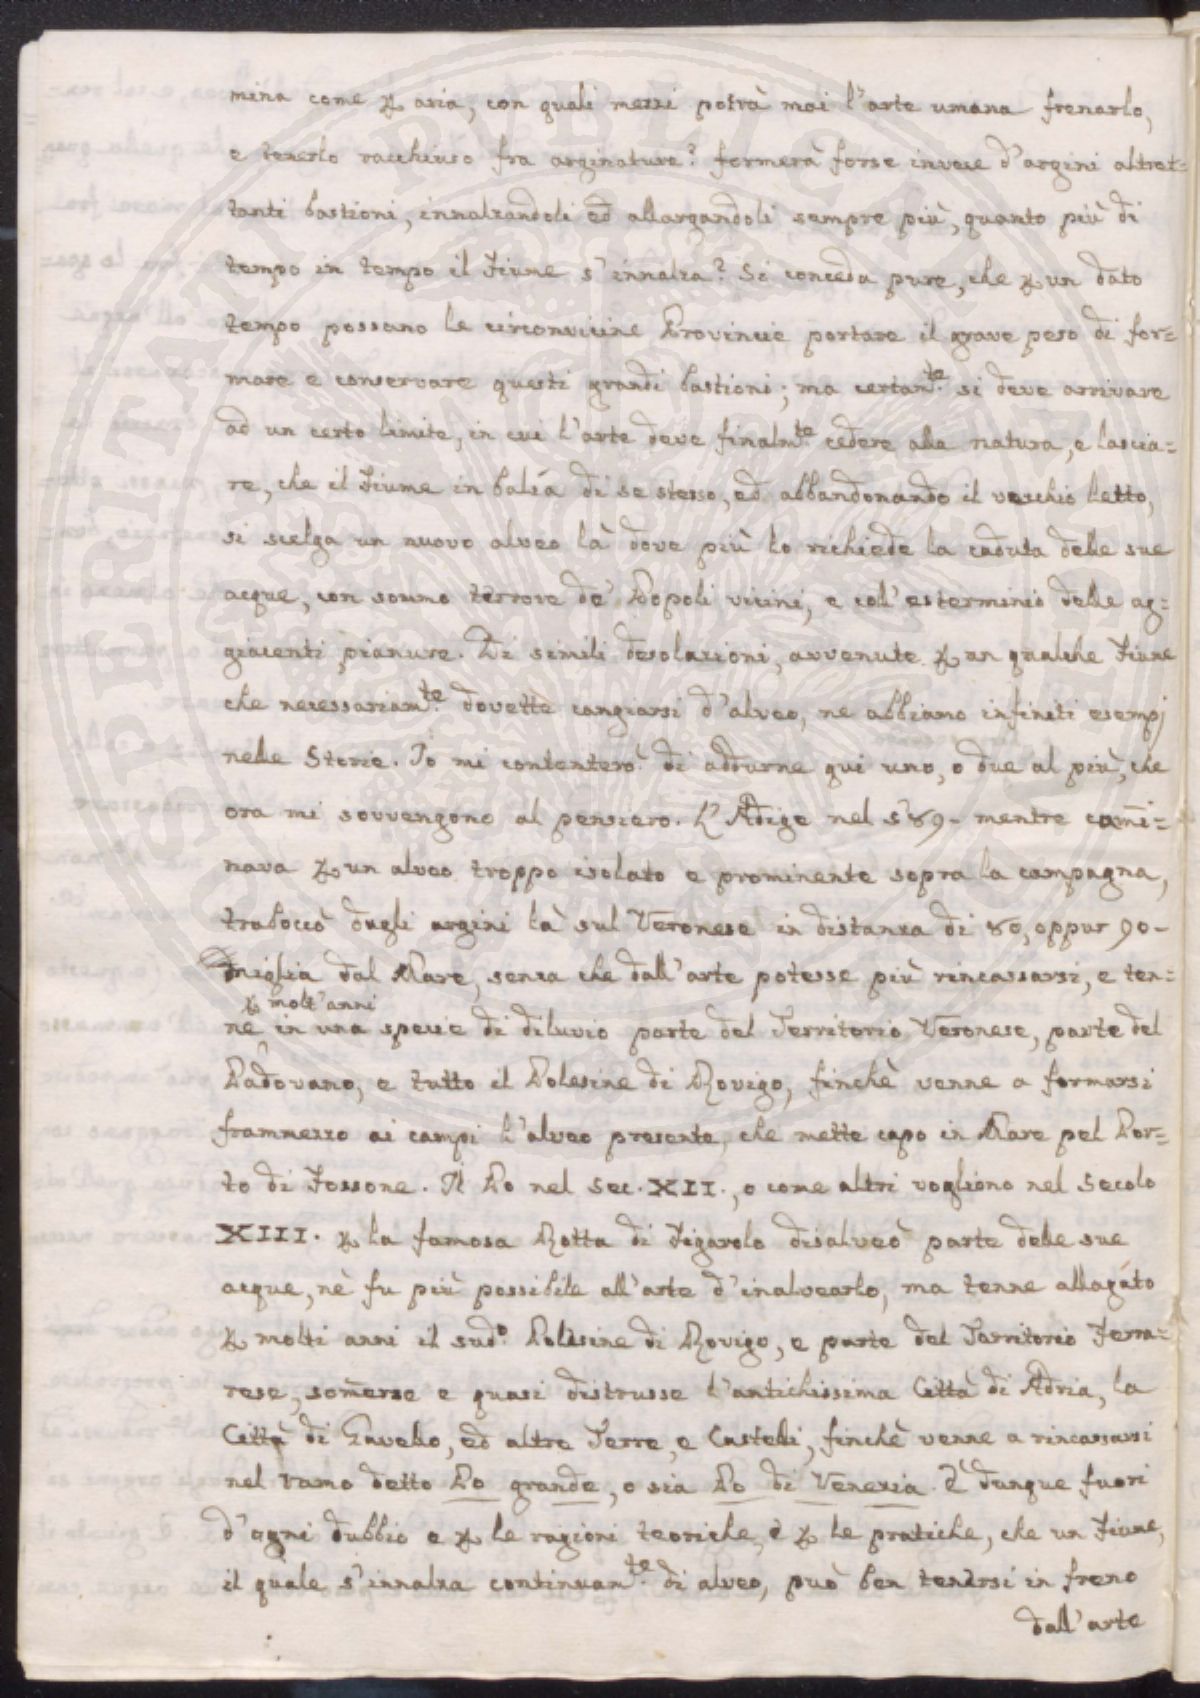 mina come ꝑ aria, con quali mezzi potrà mai l'arte umana frenarlo,
e tenerlo racchiuso fra arginature? formerà forse invece d'argini altret=
tanti bastioni, innalzandoli ed allargandoli sempre più, quanto più di
tempo in tempo il Fiume s'innalza? Si conceda pure, che ꝑ un dato
tempo possano le circonvicine Provincie portare il grave peso di for=
mare e conservare questi grandi bastioni; ma certam.te si deve arrivare
ad un certo limite, in cui l'arte deve finalm.te cedere alla natura, e lascia=
re, che il Fiume in balìa di se stesso, ed abbandonando il vecchio letto,
si scelga un nuovo alveo là dove più lo richiede la caduta delle sue
acque, con sommo terrore de' Popoli vicini, e coll'esterminio delle ag=
giacenti pianure. Di simili desolazioni, avvenute ꝑ un qualche Fiume
che necessariam.te dovette cangiarsi d'alveo, ne abbiamo infiniti esempj
nelle Storie. Io mi contenterò di addurne qui uno, o due al più, che
ora mi sovvengono al pensiero. L'Adige nel 589- mentre cam̄i=
nava ꝑ un alveo troppo isolato e prominente sopra la campagna,
traboccò dagli argini là sul Veronese in distanza di 80, oppur 90-
miglia dal Mare, senza che dall'arte potesse più rincassarsi, e ten=
ꝑ molt'anni
ne, in una specie di diluvio parte del Territorio Veronese, parte del
Padovano, e tutto il Polesine di Rovigo, finchè venne a formarsi
frammezzo ai campi l'alveo presente, che mette capo in Mare pel Por=
to di Fossone. Il Po nel Sec. XII., o come altri vogliono nel Secolo
XIII. ꝑ la famosa Rotta di Figarolo disalveò parte delle sue
acque, nè fu più possibile all'arte d'inalvearlo, ma tenne allagato
ꝑ molti anni il sud.o Polesine di Rovigo, e parte del Territorio Ferra=
rese, som̄erse e quasi distrusse l'antichissima Città di Adria, la
Città di Gavello, ed altre Terre, e Castelli, finchè venne a rincassarsi
nel ramo detto Po grande, o sia Po di Venezia. È dunque fuori
d'ogni dubbio e ꝑ le ragioni teoriche, e ꝑ le pratiche, che un Fiume,
il quale s'innalza continuam.te di alveo, può ben tenersi in freno
dall'arte